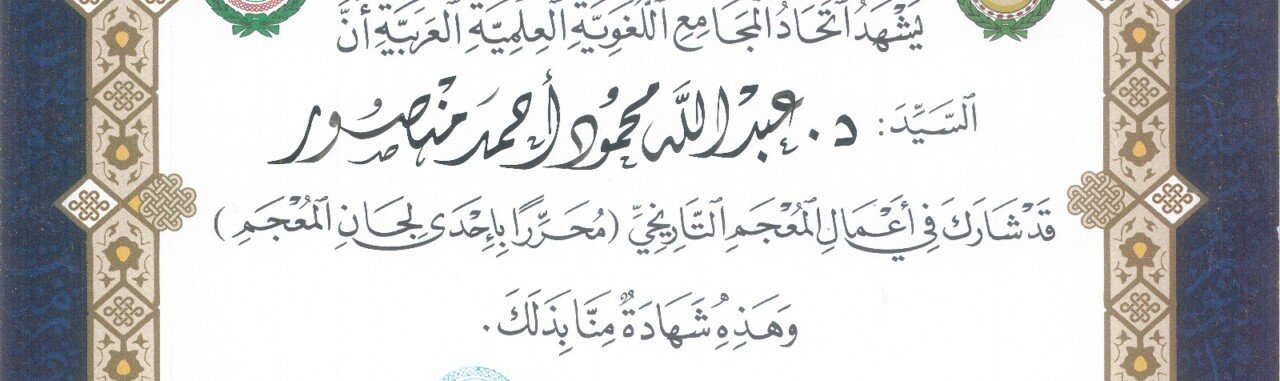 يَشْهَدُ اتِّحَادُ المَجَامِعِ اللُّغَوِيَّةِ العِلْمِيَّةِ العَرَبِيَّةِ أَنَّ
السَّيِّدَ: د. عبد الله محمود أحمد منصور
قَدْ شَارَكَ فِي أَعْمَالِ المُعْجَمِ التَّارِيخِيِّ (مُحَرِّرًا بِإِحْدَى لِجَانِ المُعْجَمِ)
وَهَذِهِ شَهَادَةٌ مِنَّا بِذَلِكَ.